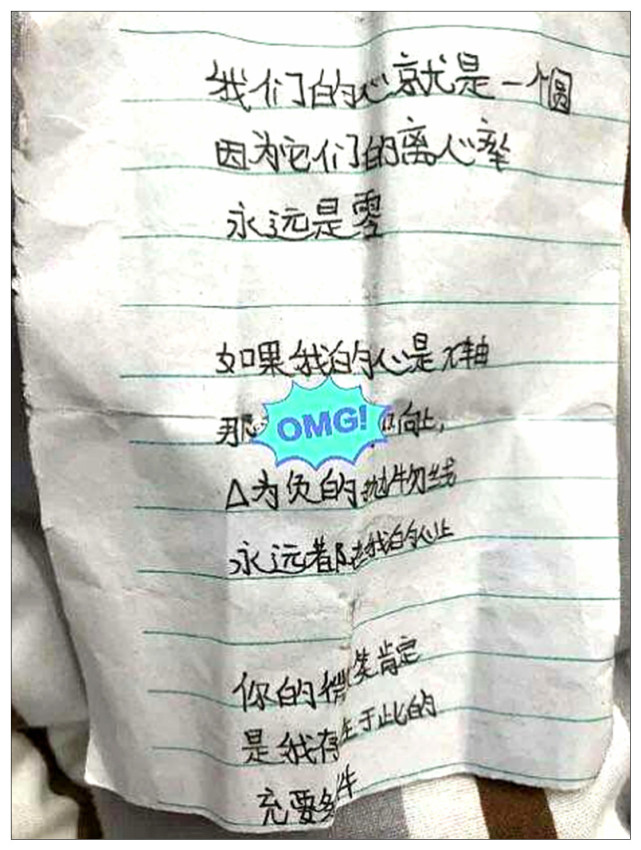 我们的心就是一个圆
因为它们的离心率
永远是零
如果我的心是x轴
那 向上,
OMG!
Δ为负的抛物线
永远都在我的心上
你的微笑肯定
是我存生于此的
充要条件